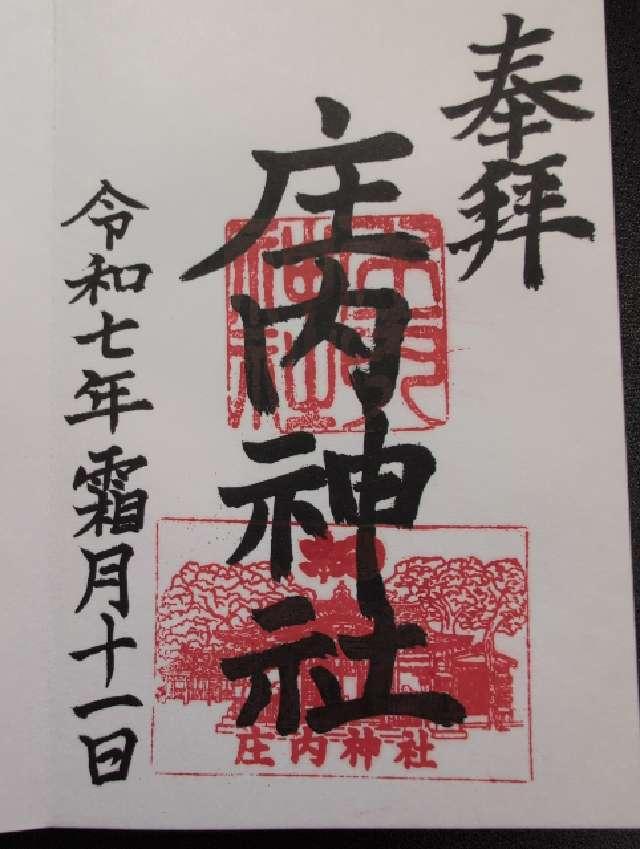 奉拝
庄内神社
令和七年霜月十一日
庄内神社